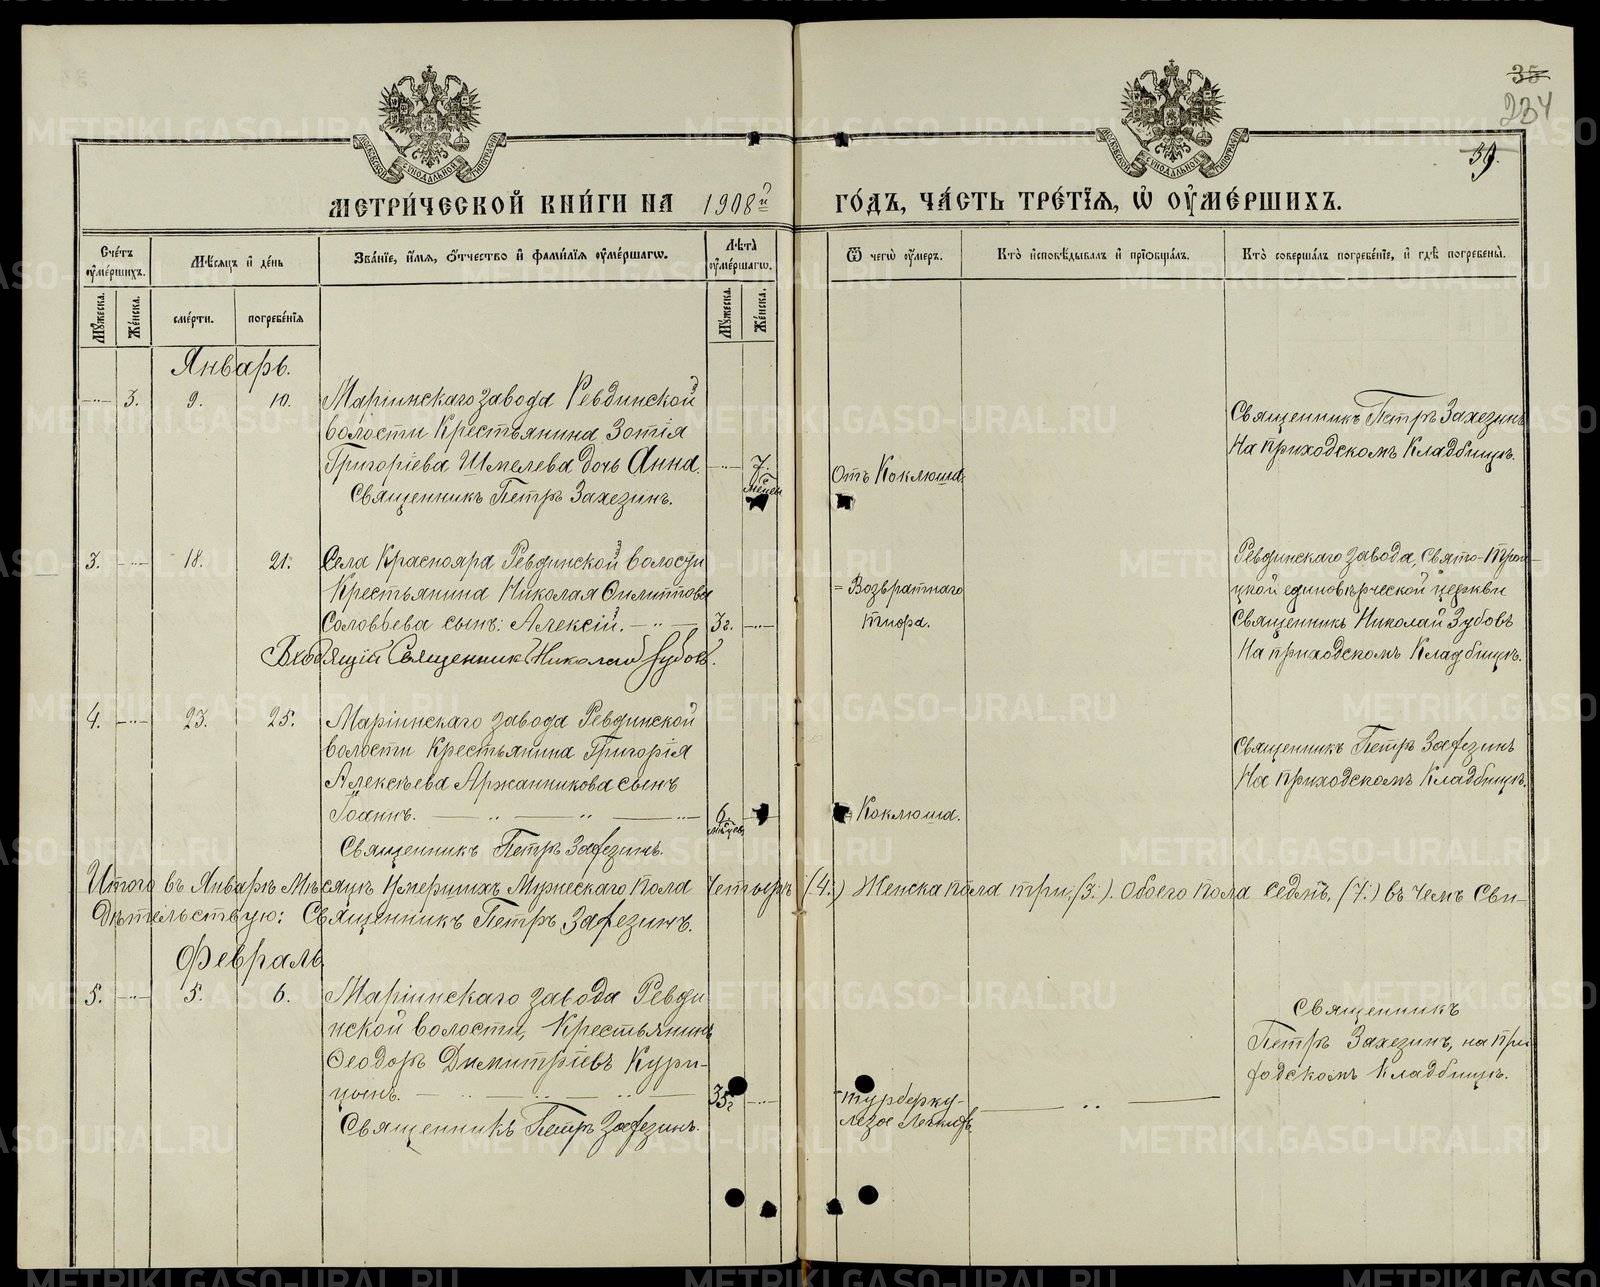 35
234
39.
МЕТРИ́ЧЕСКОЙ КНИ́ГИ НА 1908й ГО́ДЪ, ЧА́СТЬ ТРЕ́ТЇѦ, Ѡ҆ ОУ҆МЕ́РШИХЪ.
Сче́тъ оу҆ме́ршихъ.
Мѣ́сѧцъ и҆ де́нь
Зва́нїе, и҆́мѧ, ѻ҆́тчество и҆ фами́лїѧ оу҆ме́ршагѡ.
Лѣ́та оу҆ме́ршагѡ.
Ѿ чегѡ̀ оу҆́меръ.
Кто̀ и҆сповѣ́дывалъ и҆ прїѡбща́лъ.
Кто̀ соверша́лъ погребе́нїе, и҆ гдѣ̀ погребены̀.
Мꙋ́жеска.
Же́нска.
сме́рти.
погребе́нїѧ
Мꙋ́жеска.
Же́нска.
Январь.
3. 9. 10. Маріинскаго завода Ревдинской
волости Крестьянина Зотія
Григоріева Шмелева дочь Анна.
7. месец
Священникъ Петръ Захезинъ.
Отъ Коклюша.
Священникъ Петръ Захезинъ
На приходскомъ Кладбищѣ.
3. 18. 21. Села Краснояра Ревдинской волости
Крестьянина Николая Филиппова
Соловьева сынъ: Алексій.
3г.
Входящій Священник Николай Зубовъ.
Возвратнаго
тифа.
Ревдинскаго завода, Свято-Трои-
цкой единовѣрческой церкви
Священникъ Николай Зубовъ
На приходскомъ Кладбищѣ.
4. 23. 25. Маріинскаго завода Ревдинской
волости Крестьянина Григорія
Алексѣева Аржанникова сынъ
Іоаннъ.
6. мѣсяц.
Священникъ Петръ Захезинъ.
Коклюша.
Священникъ Петръ Захезинъ
На приходскомъ Кладбищѣ.
Итого въ Январѣ Мѣсяцѣ Умершихъ Мужескаго пола Четыре (4.) Женска пола три, (3.). Обоего пола седмь, (7.) въ чемъ Сви-
дѣтельствую: Священникъ Петръ Захезинъ.
Февраль.
5. 5. 6. Маріинскаго завода Ревди-
нской волости, Крестьянинъ
Ѳеодоръ Димитріевъ Кури-
цынъ.
35г.
Священникъ Петръ Захезинъ.
туберку-
леза Легкихъ
Священникъ
Петръ Захезинъ, на при-
ходскомъ Кладбищѣ.